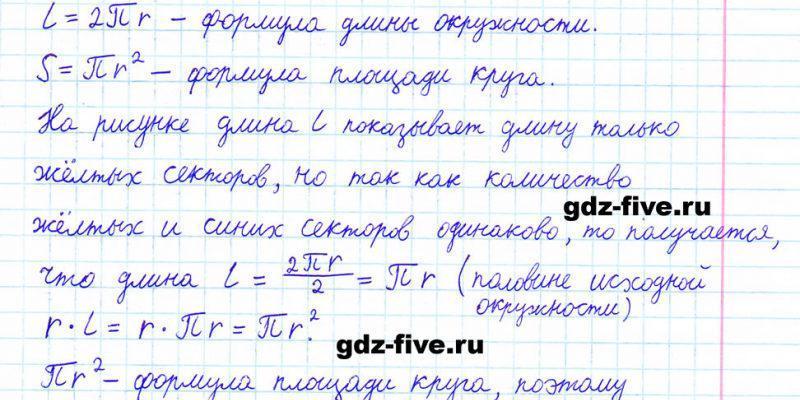 L = 2πr – формула длины окружности.
S = πr² – формула площади круга.
На рисунке длина L показывает длину только
жёлтых секторов, но так как количество
gdz-five.ru
жёлтых и синих секторов одинаково, то получается,
что длина L = 2πr/2 = πr (половине исходной
окружности)
r · L = r · πr = πr².
gdz-five.ru
πr² – формула площади круга, поэтому